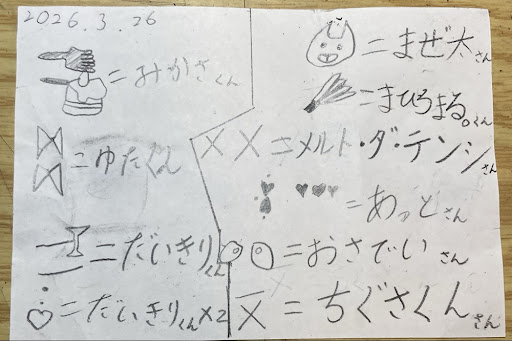 2026.3.26
=みかさくん
=ゆたくん
=だいきりくん
=だいきりくん×2
=まぜ太さん
=まひろまる。くん
××=メルト・ダ・テンシさん
=あっとさん
=おさでいさん
=ちぐさくんさん